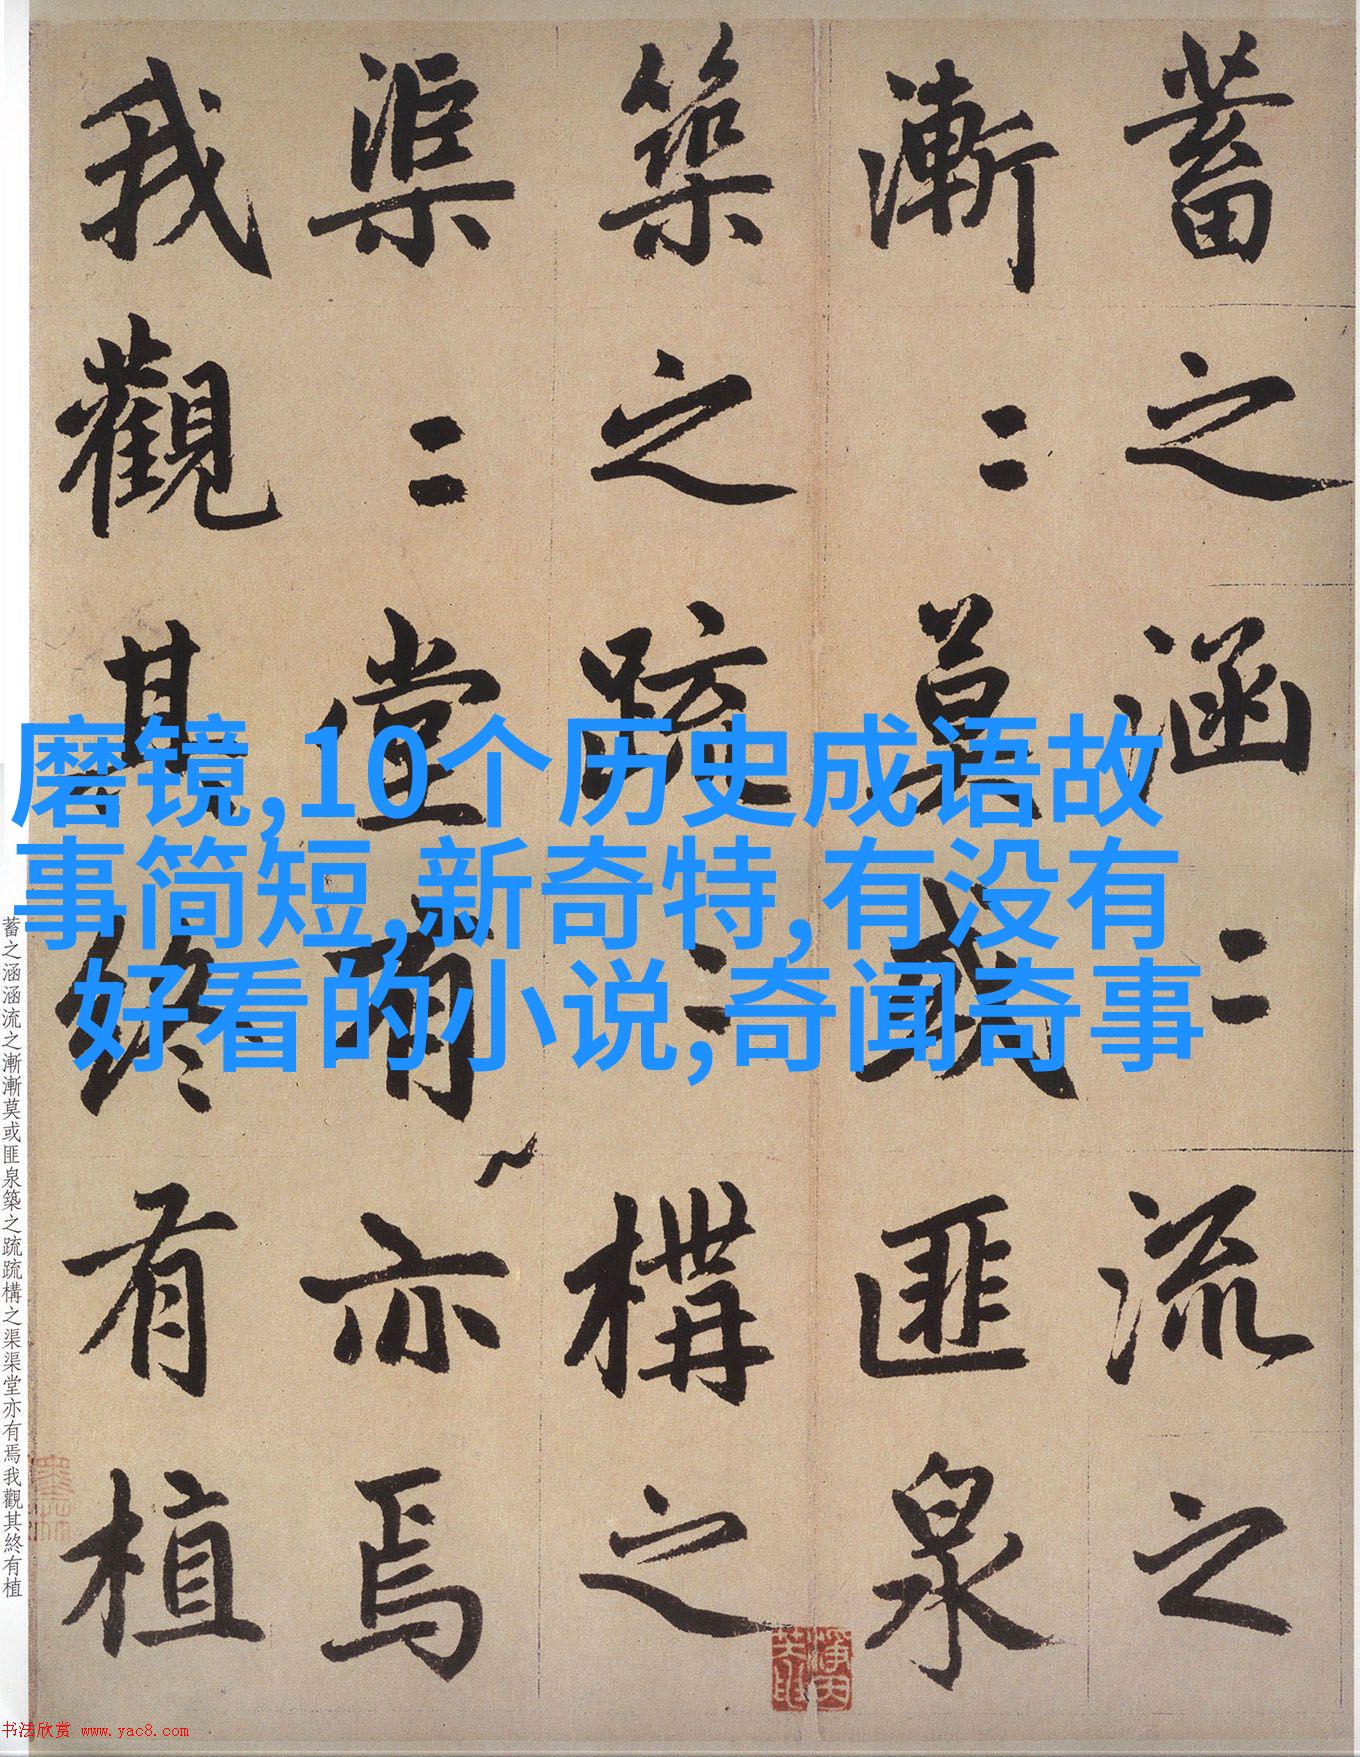 蓄之涵〻流之
漸〻莫或匪泉
築之疏〻構之
渠〻堂有亦焉
我觀其終有植
磨镜,10个历史成语故
事简短,新奇特,有没有
好看的小说,奇闻奇事
蓄之涵涵流之漸漸莫或匪泉築之疏疏構之渠渠堂亦有焉我觀其終有植
书法欣赏 www.yac8.com